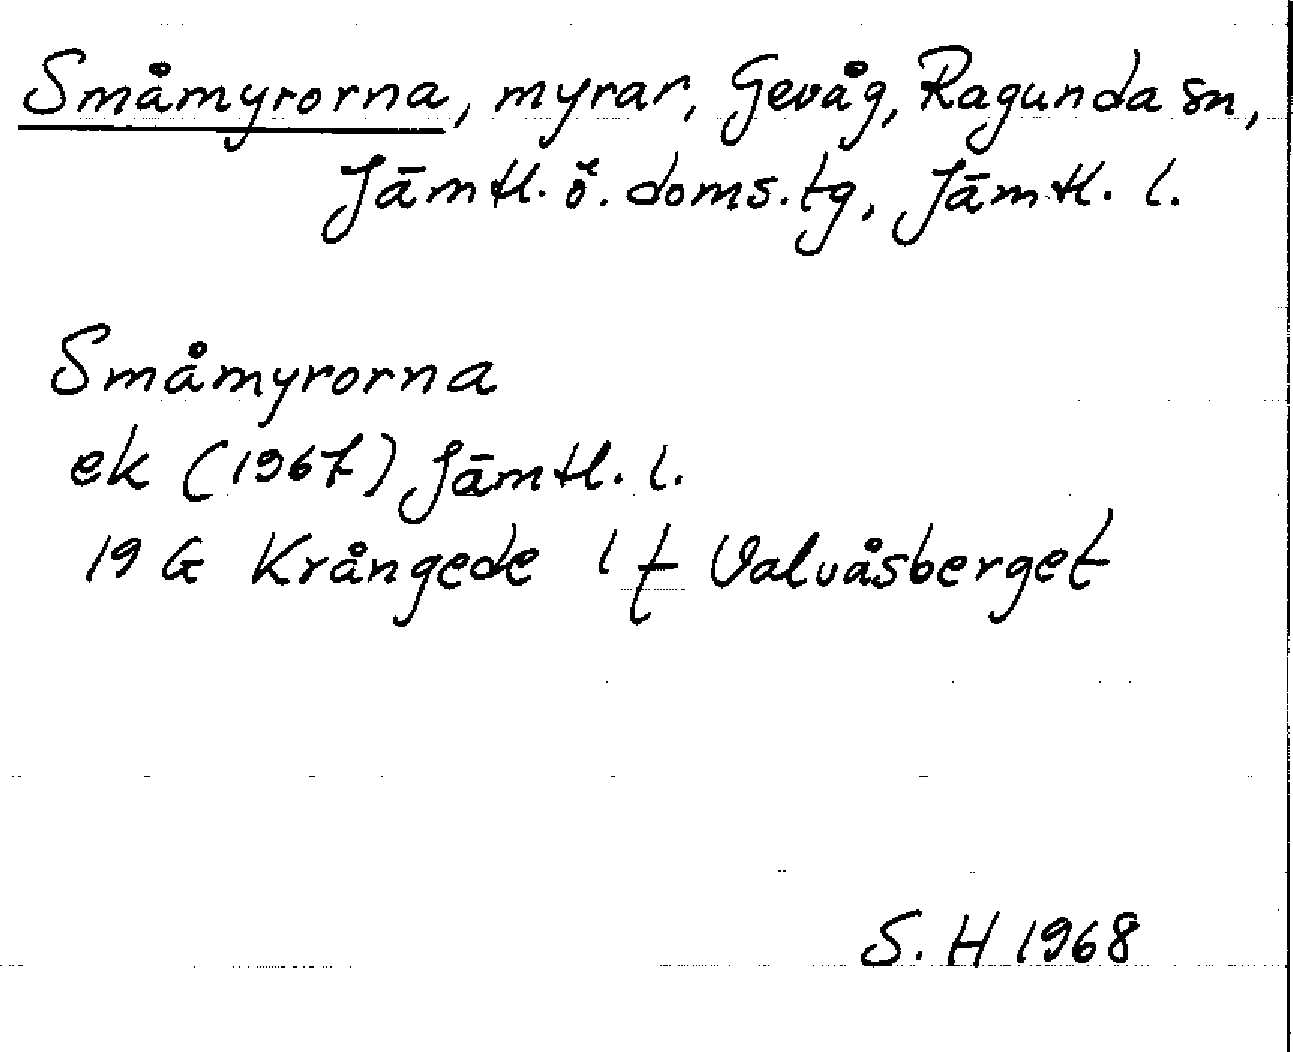 Småmyrorna, myrar, Gevåg, Ragunda sn,
Jämtl. ö. doms.tg, Jämtl. l.
Småmyrorna
ek (1967) Jämtl. l.
19 G Krångede 1 f Valvåsberget
S. H 1968